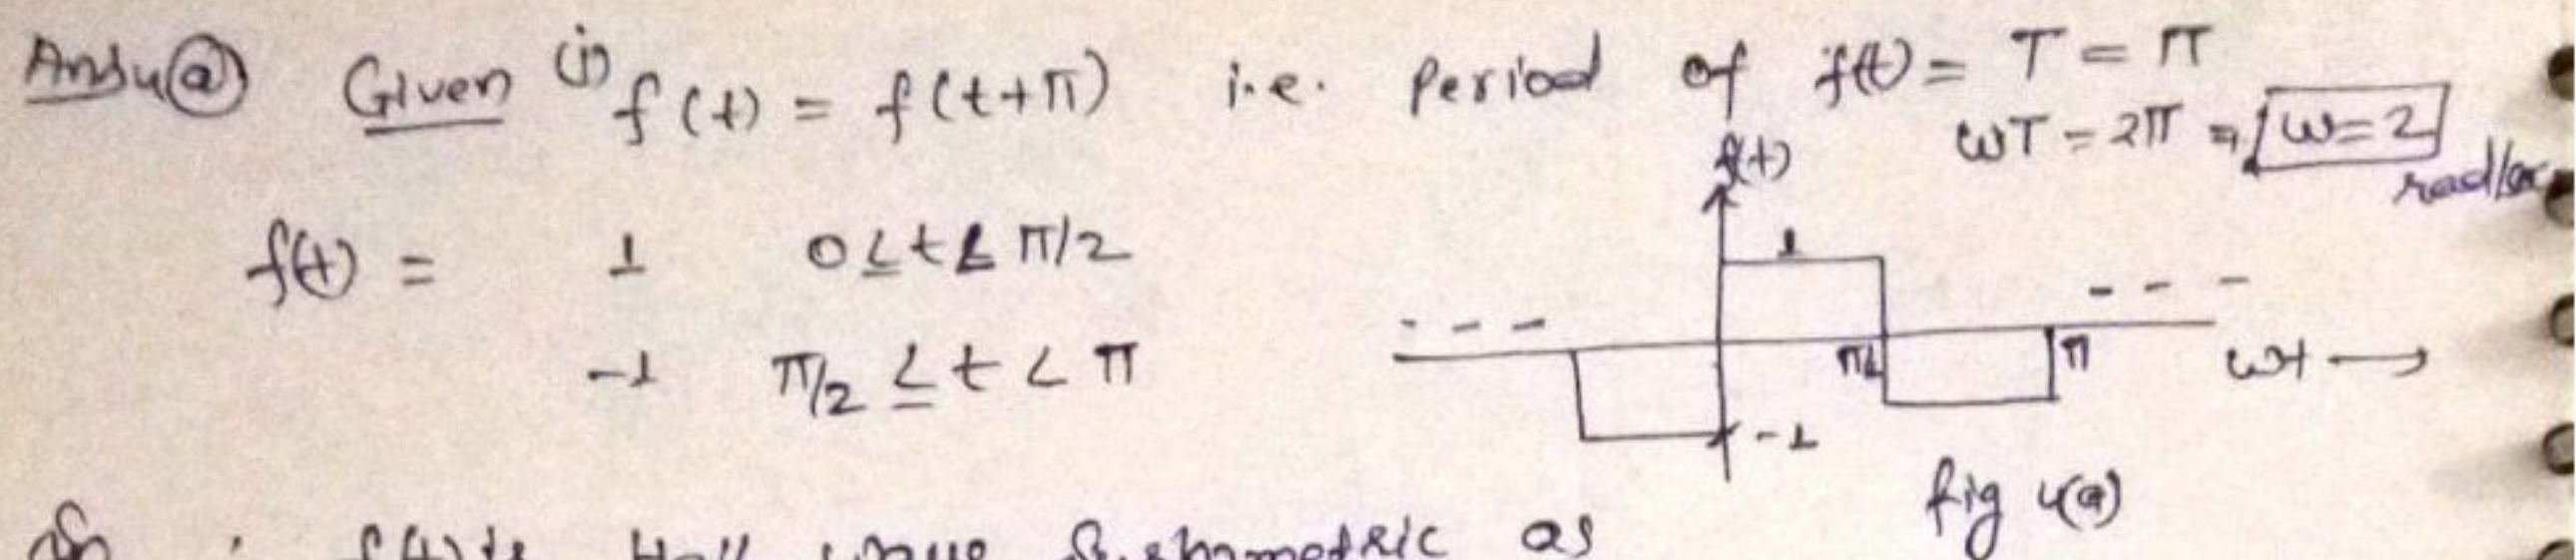 Ansu(a) Given (i) f(t) = f(t+π) i.e. Period of f(t) = T = π
ωT = 2π ⇒ ω=2
rad/sec
f(t)
f(t) = 1 0≤t<π/2
-1 π/2 ≤ t < π
1
π/2 π
ωt →
-1
fig 4(a)
f(t) is Half wave Symmetric as